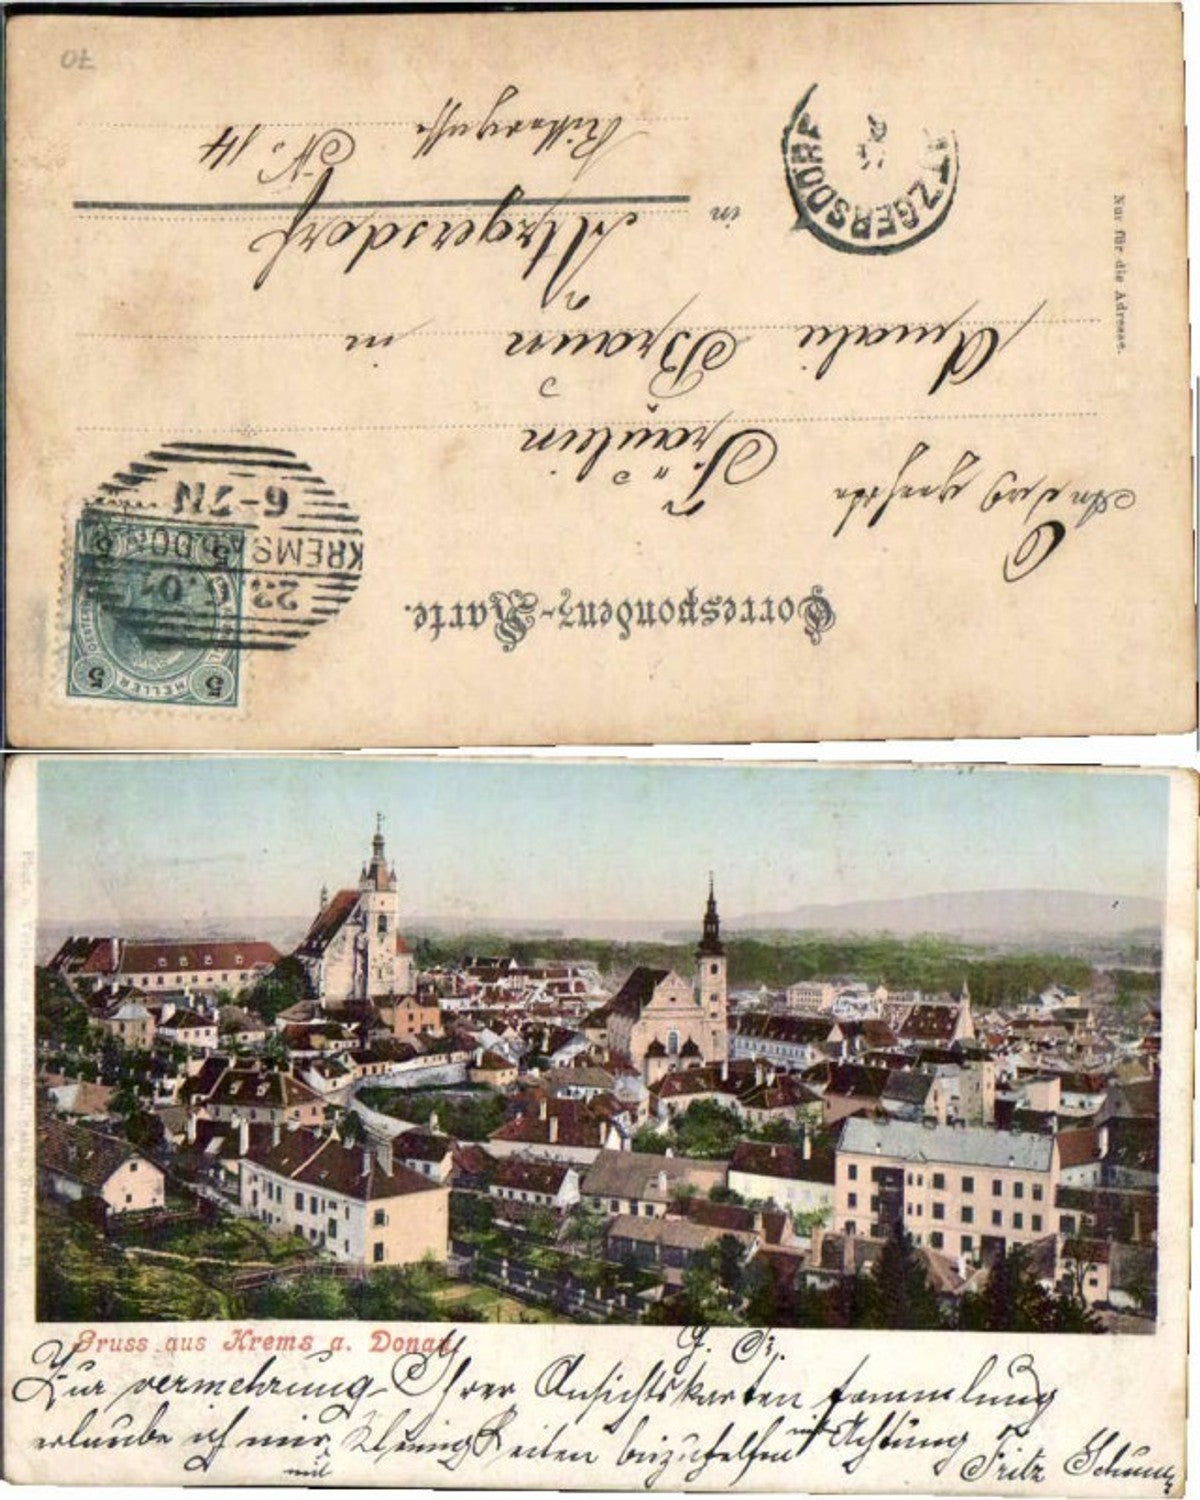 70
Correspondenz-Karte.
An das geehrte
Fräulein
Amalie Braun in
in Atzgersdorf
Nº 14
Nur für die Adresse.
ATZGERSDORF
5 HELLER 5
23
KREMS A.D. DONAU
6-7N
Gruss aus Krems a. Donau
Zur vermehrung Ihrer Ansichtskarten sammlung
erlaube ich mir, mit Kleinigkeiten beizuhelfen mit Achtung
Fritz